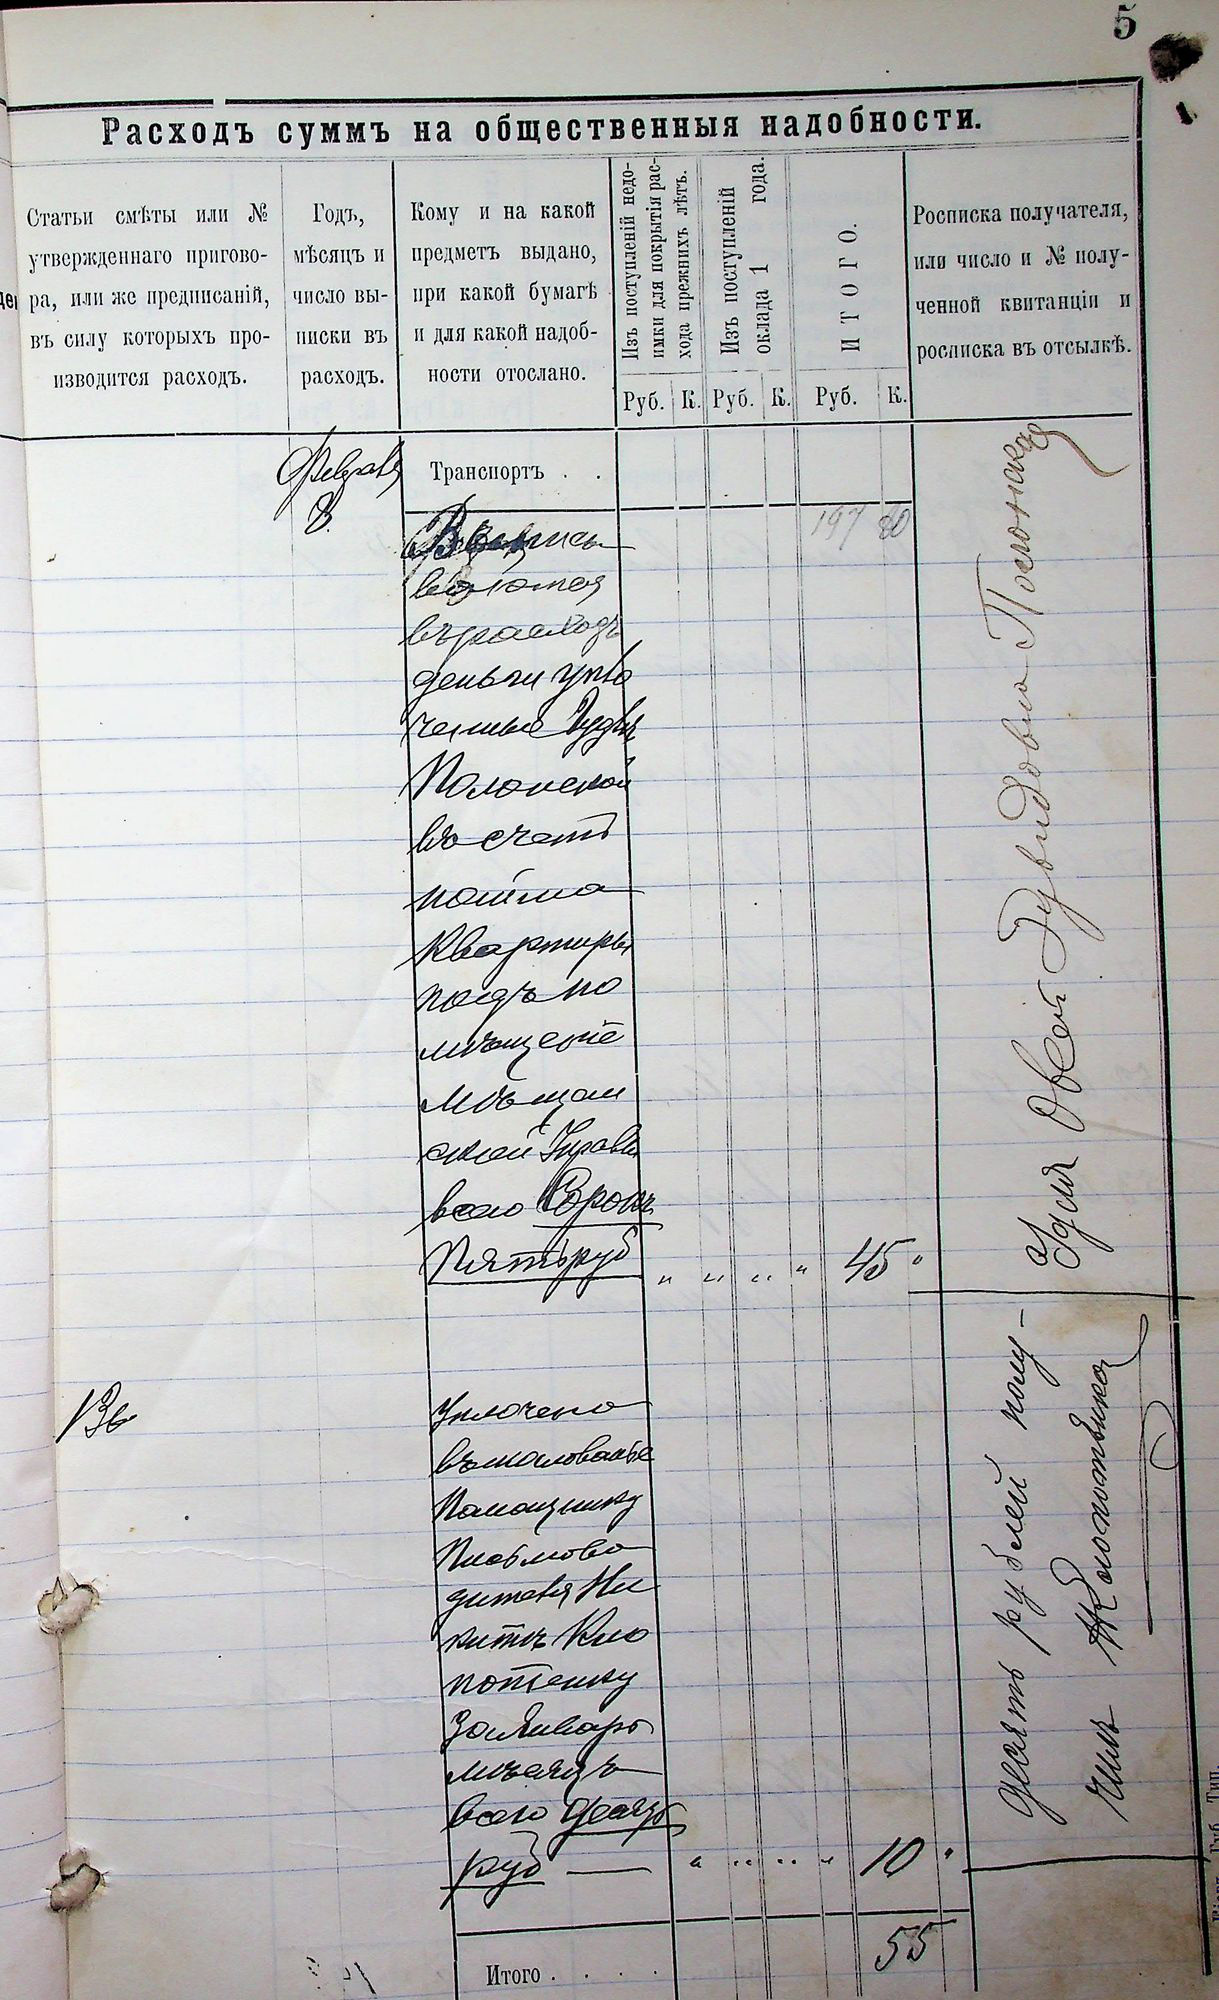 5
Расходъ суммъ на общественныя надобности.
Статьи смѣты или №
утвержденнаго пригово-
ра, или же предписаній,
въ силу которыхъ про-
изводится расходъ.
Годъ,
мѣсяцъ и
число вы-
писки въ
расходъ.
Кому и на какой
предметъ выдано,
при какой бумагѣ
и для какой надоб-
ности отослано.
Изъ поступленій недо-
имки для покрытія рас-
хода прежнихъ лѣтъ.
Изъ поступленій
оклада 1 года.
ИТОГО.
Росписка получателя,
или число и № полу-
ченной квитанціи и
росписка въ отсылкѣ.
Руб. К. Руб. К. Руб. К.
Февраля
8
Транспортъ . .
197 80
въ расходъ
деньги упло
ченные
Полонской
въ счетъ
найма
квартиры
подъ по
мѣщеніе
мѣщан
ской Управы
всего Сорокъ
Пять руб " " " " 45 "
Полонская
Уплочено
въ жалованье
Помощнику
Письмово
дителя Ни
китѣ Кло
потенку
за Январь
мѣсяцъ
всего Десять
руб — " " " " 10 "
Десять рублей полу-
чилъ
Итого . . . . 55